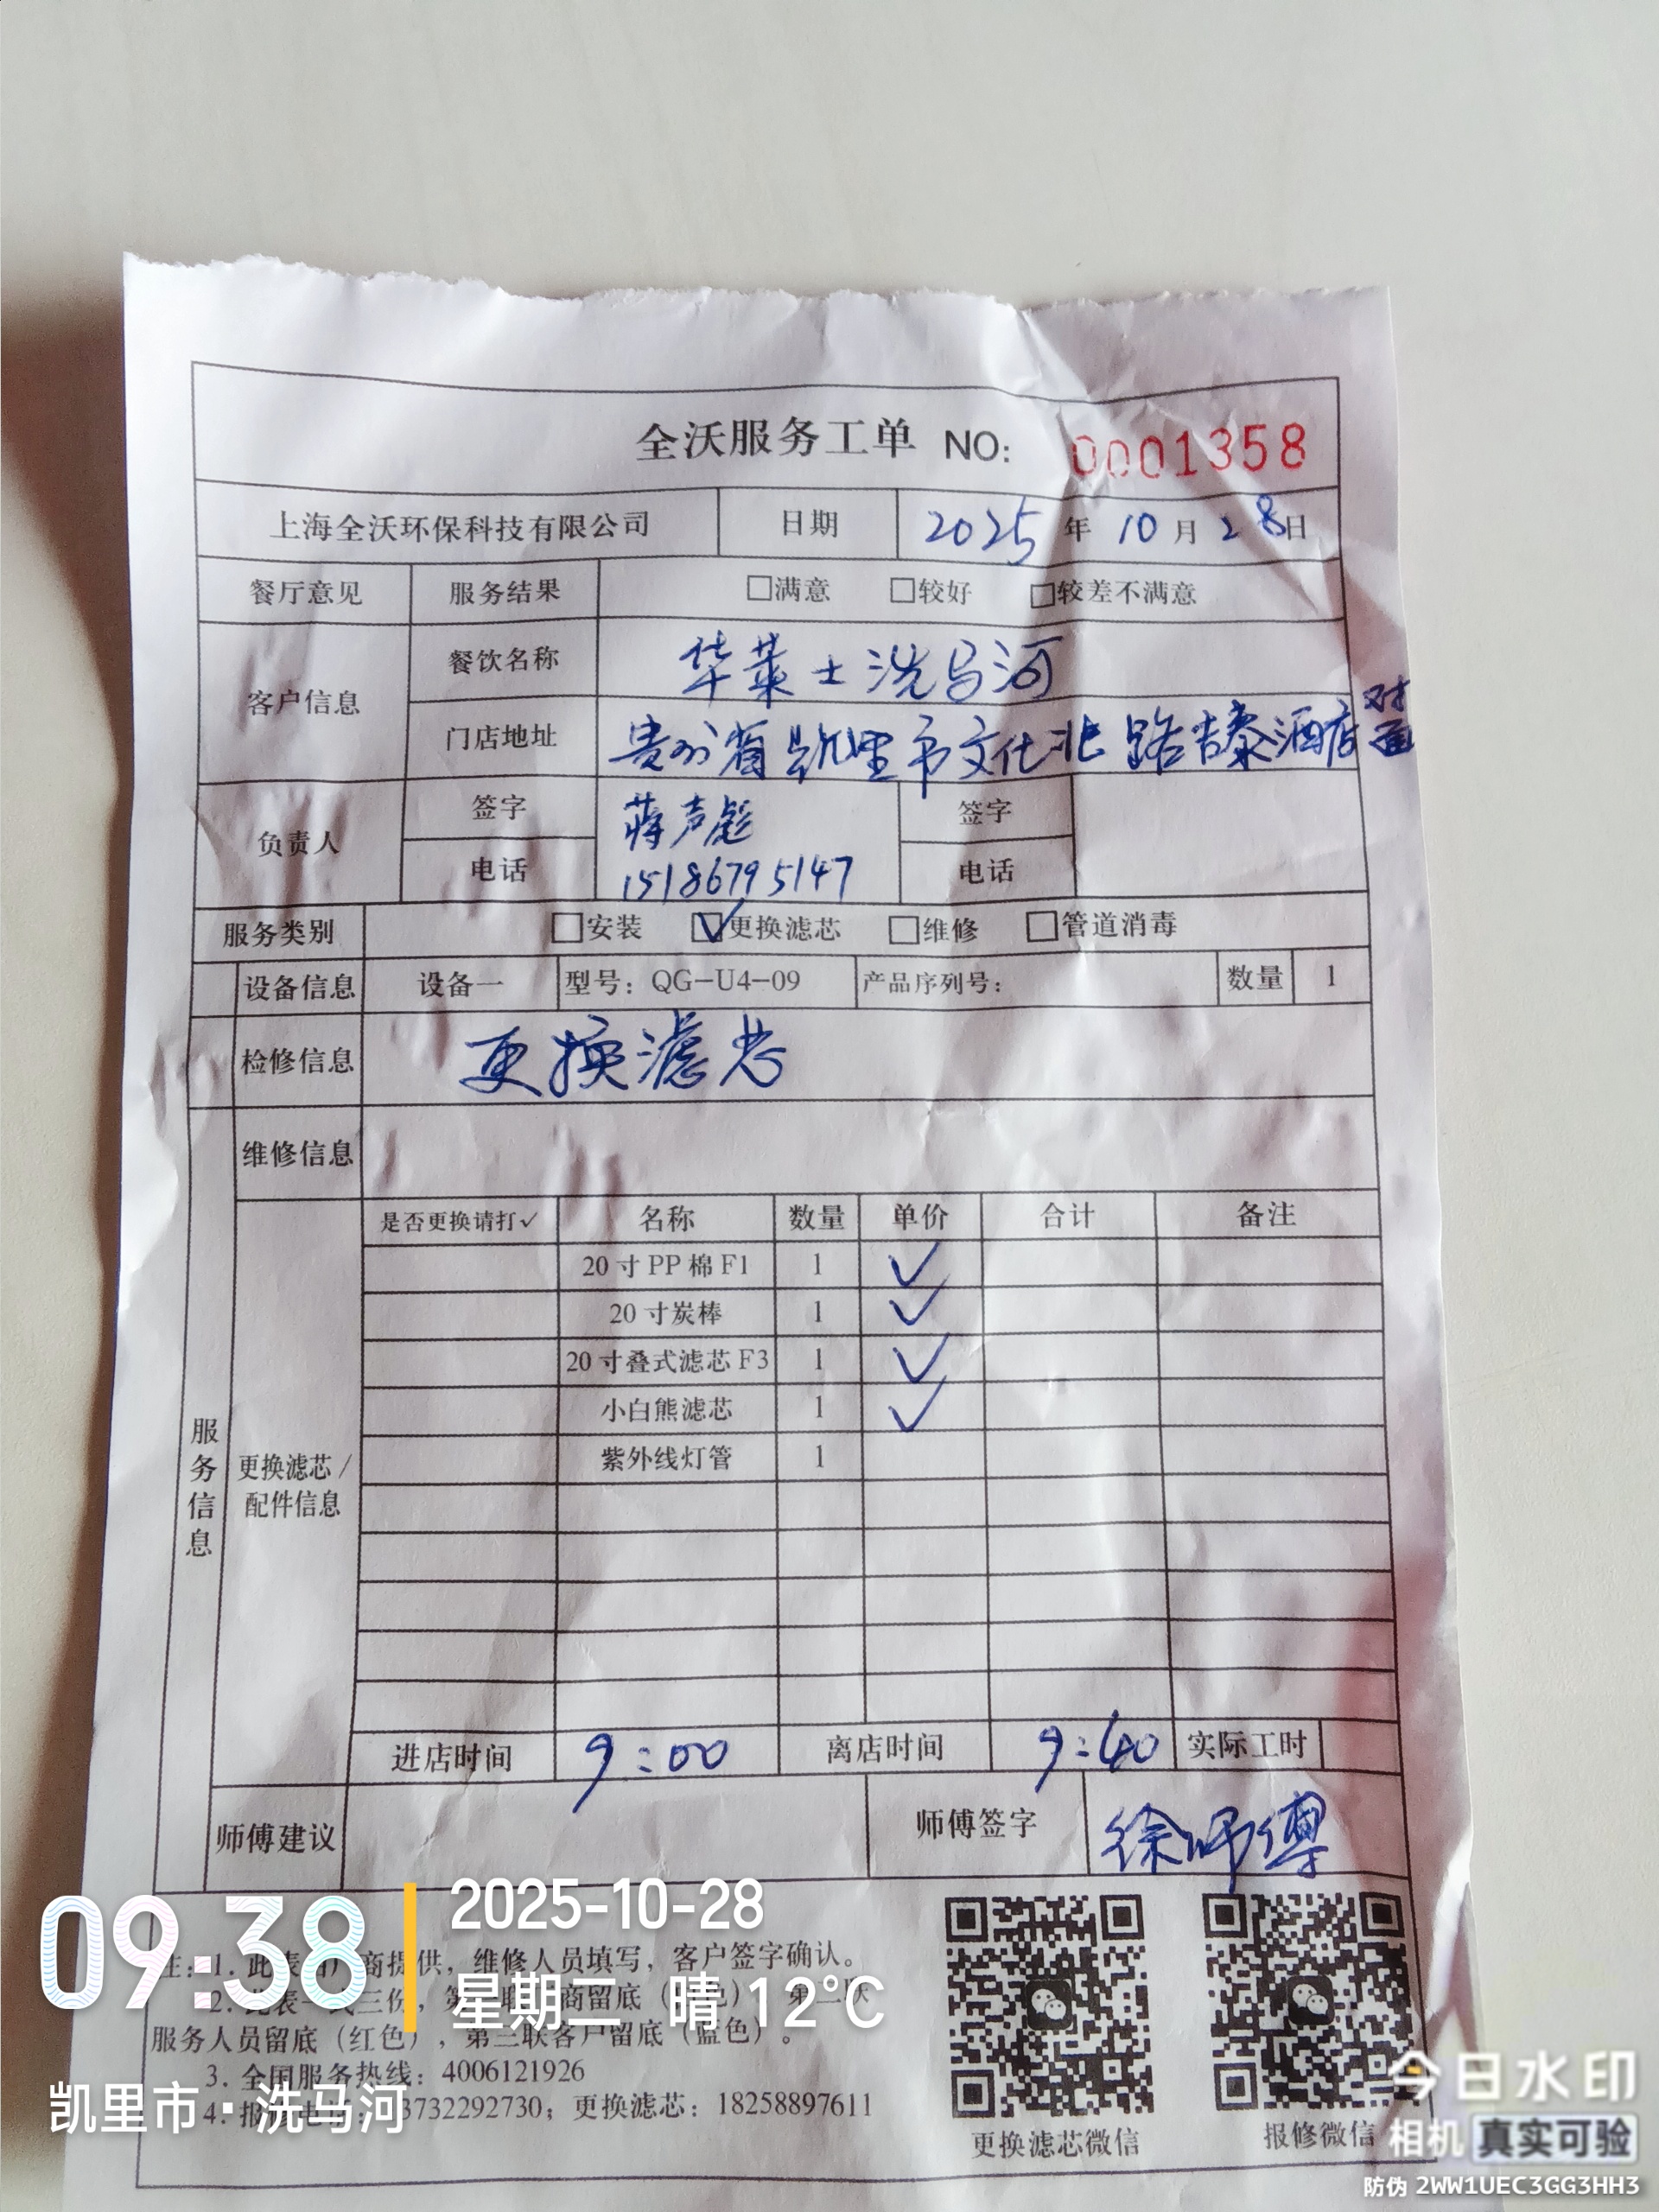 全沃服务工单 NO: 0001358
上海全沃环保科技有限公司 日期 2025 年 10 月 28 日
餐厅意见 服务结果 □满意 □较好 □较差不满意
客户信息 餐饮名称 华莱士洗马河
门店地址 贵州省凯里市文化北路吉泰酒店对面
负责人 签字 蒋声彪 签字
电话 15186795147 电话
服务类别 □安装 ☑更换滤芯 □维修 □管道消毒
设备信息 设备一 型号：QG-U4-09 产品序列号： 数量 1
检修信息 更换滤芯
维修信息
服务信息
更换滤芯/
配件信息
是否更换请打✓ 名称 数量 单价 合计 备注
20寸PP棉F1 1 ✓
20寸炭棒 1 ✓
20寸叠式滤芯F3 1 ✓
小白熊滤芯 1 ✓
紫外线灯管 1
进店时间 9:00 离店时间 9:40 实际工时
师傅建议 师傅签字 徐师傅
注：1. 此表 商提供，维修人员填写，客户签字确认。
2. 此表一式三份，第 商留底（ 色） 第二联
服务人员留底（红色），第三联客户留底（蓝色）。
3. 全国服务热线：4006121926
4. 报修电 3732292730；更换滤芯：18258897611
更换滤芯微信
报修微信
09:38
2025-10-28
星期二 晴 12°C
凯里市·洗马河
今日水印
相机 真实可验
防伪 2WW1UEC3GG3HH3